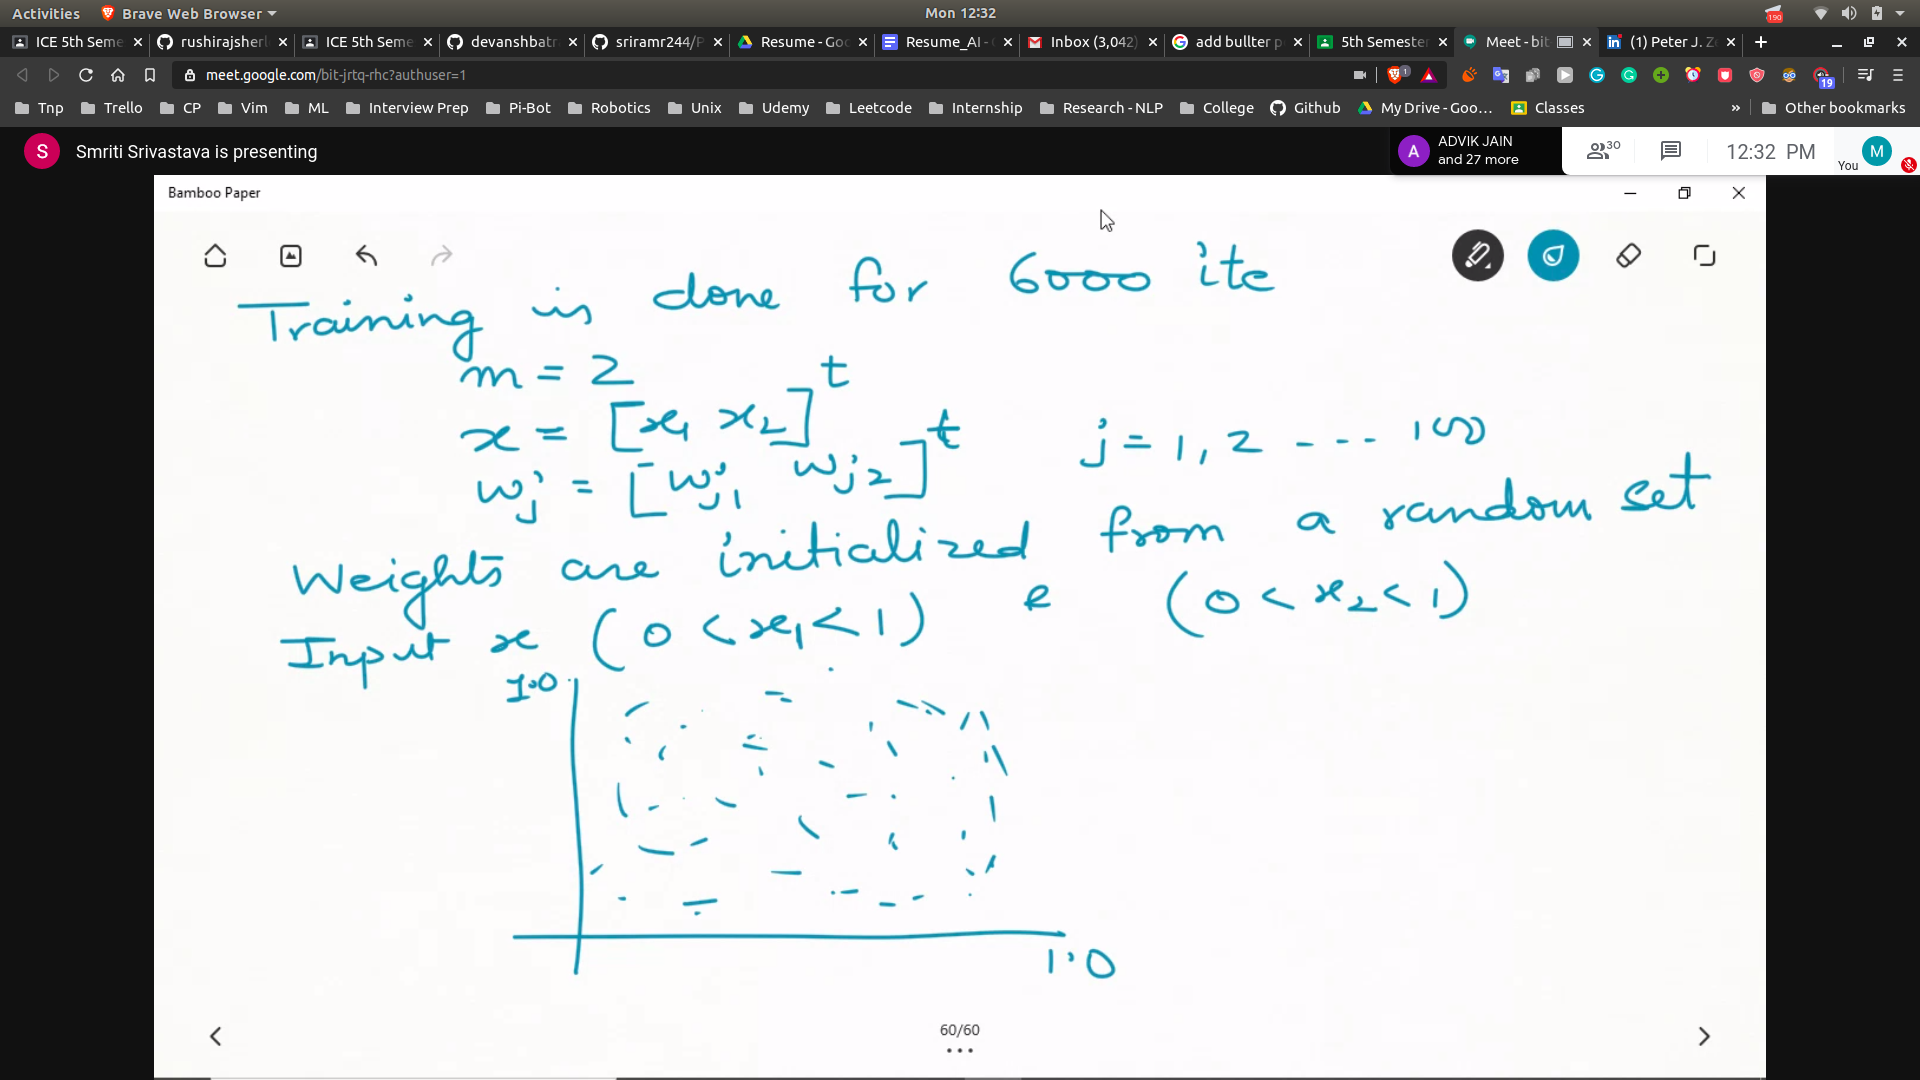 Activities Brave Web Browser Mon 12:32
ICE 5th Seme rushirajsherl ICE 5th Seme devanshbatr sriramr244/P Resume - Goo Resume_AI - G Inbox (3,042) add bullter p 5th Semester Meet - bit (1) Peter J. Ze
meet.google.com/bit-jrtq-rhc?authuser=1 1 19
Tnp Trello CP Vim ML Interview Prep Pi-Bot Robotics Unix Udemy Leetcode Internship Research - NLP College Github My Drive - Goo... Classes » Other bookmarks
S Smriti Srivastava is presenting
A ADVIK JAIN
and 27 more
30 12:32 PM You M
Bamboo Paper
Training is done for 6000 ite
m = 2
x = [x1 x2]^t
wj = [wj1 wj2]^t j = 1, 2 ---- 100
Weights are initialized from a random set
Input x (0 < x1 < 1) & (0 < x2 < 1)
1.0
1.0
60/60